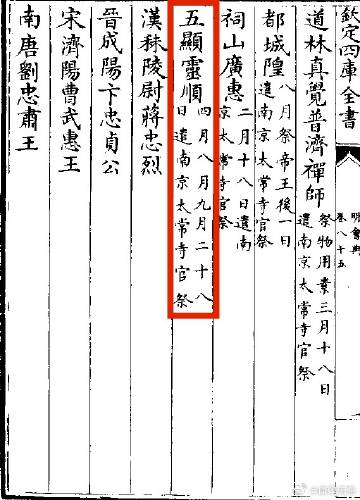 欽定四庫全書
明會典
卷八十五
道林真覺普濟禪師 祭物用素三月十八日
遣南京太常寺官祭
都城隍 八月祭帝王後一日
遣南京太常寺官祭
祠山廣惠 二月十八日遣南
京太常寺官祭
五顯靈順 四月八日九月二十八
日遣南京太常寺官祭
漢秣陵尉蔣忠烈
晉成陽卞忠貞公
宋濟陽曹武惠王
南唐劉忠肅王